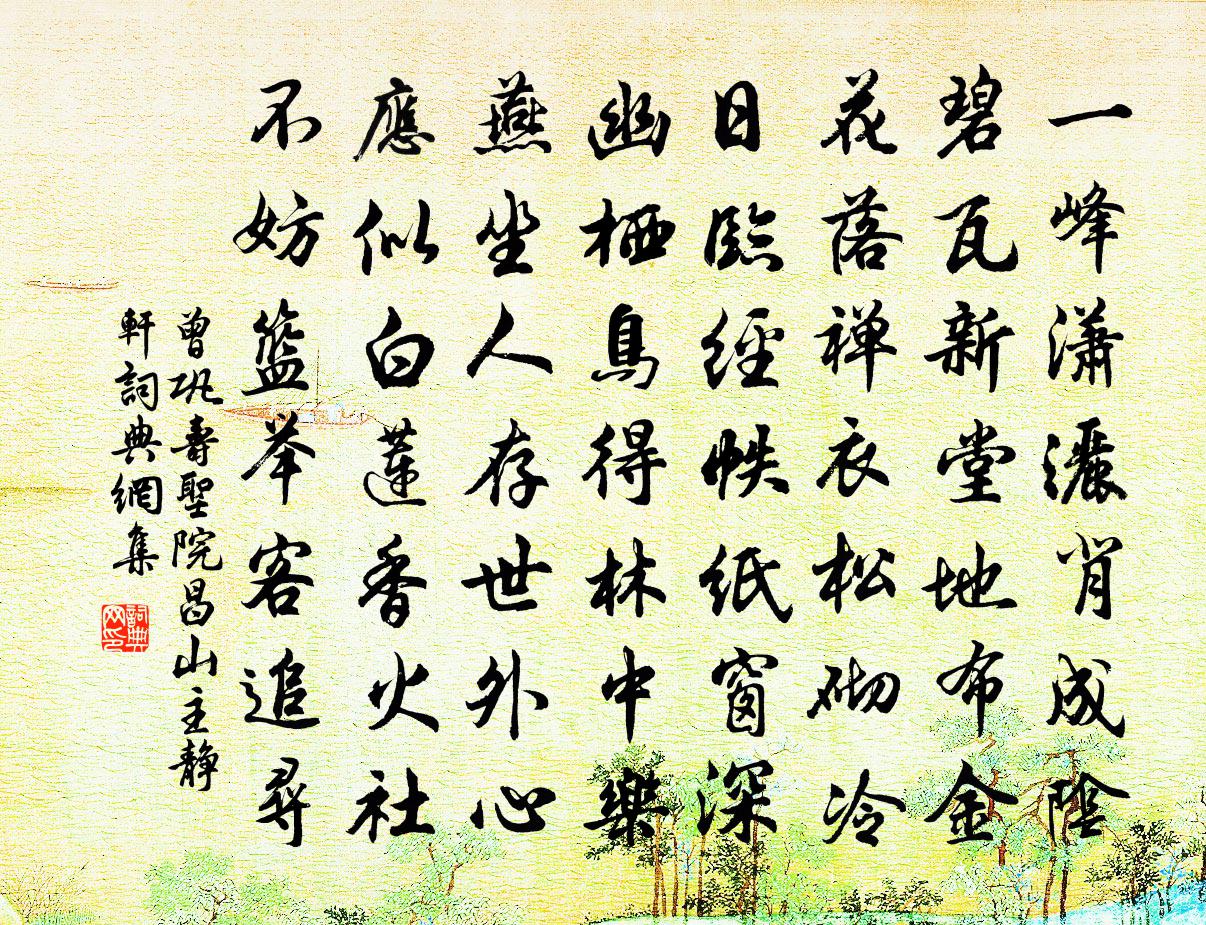 一峰瀟灑背成陰
碧瓦新堂地布金
花落禅衣松砌冷
日臨經帙紙窗深
幽栖鳥得林中樂
燕坐人存世外心
應似白蓮香火社
不妨籃举客追尋
曾巩壽聖院昌山主静
軒詞典網集
詞典
网印